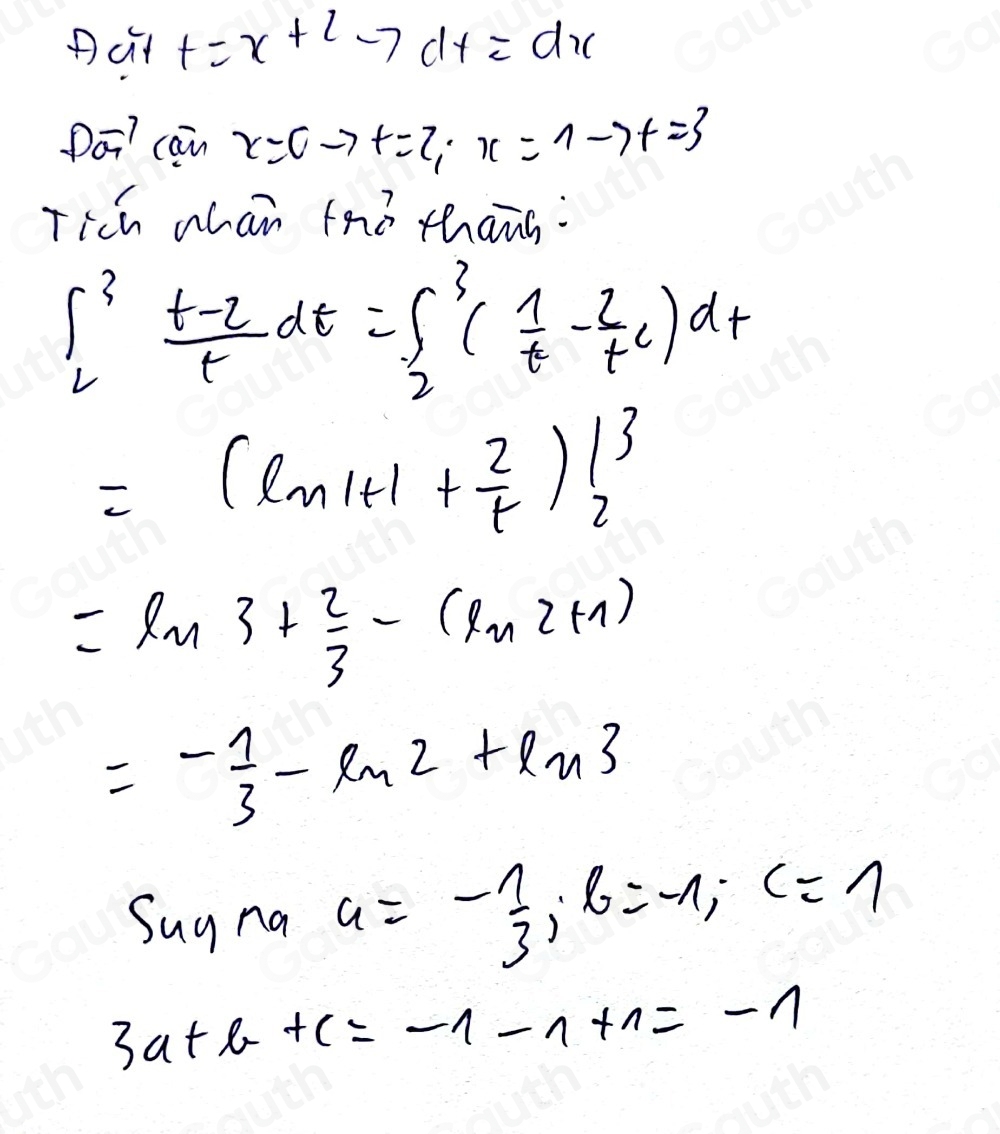 Đặt t = x + 2 → dt = dx
Đổi cận x = 0 → t = 2; x = 1 → t = 3
Tích phân trở thành:
∫₂³ (t-2)/t dt = ∫₂³ (1/t - 2/t²) dt
= (ln|t| + 2/t) |₂³
= ln 3 + 2/3 - (ln 2 + 1)
= -1/3 - ln 2 + ln 3
Suy ra a = -1/3; b = -1; c = 1
3a + b + c = -1 - 1 + 1 = -1